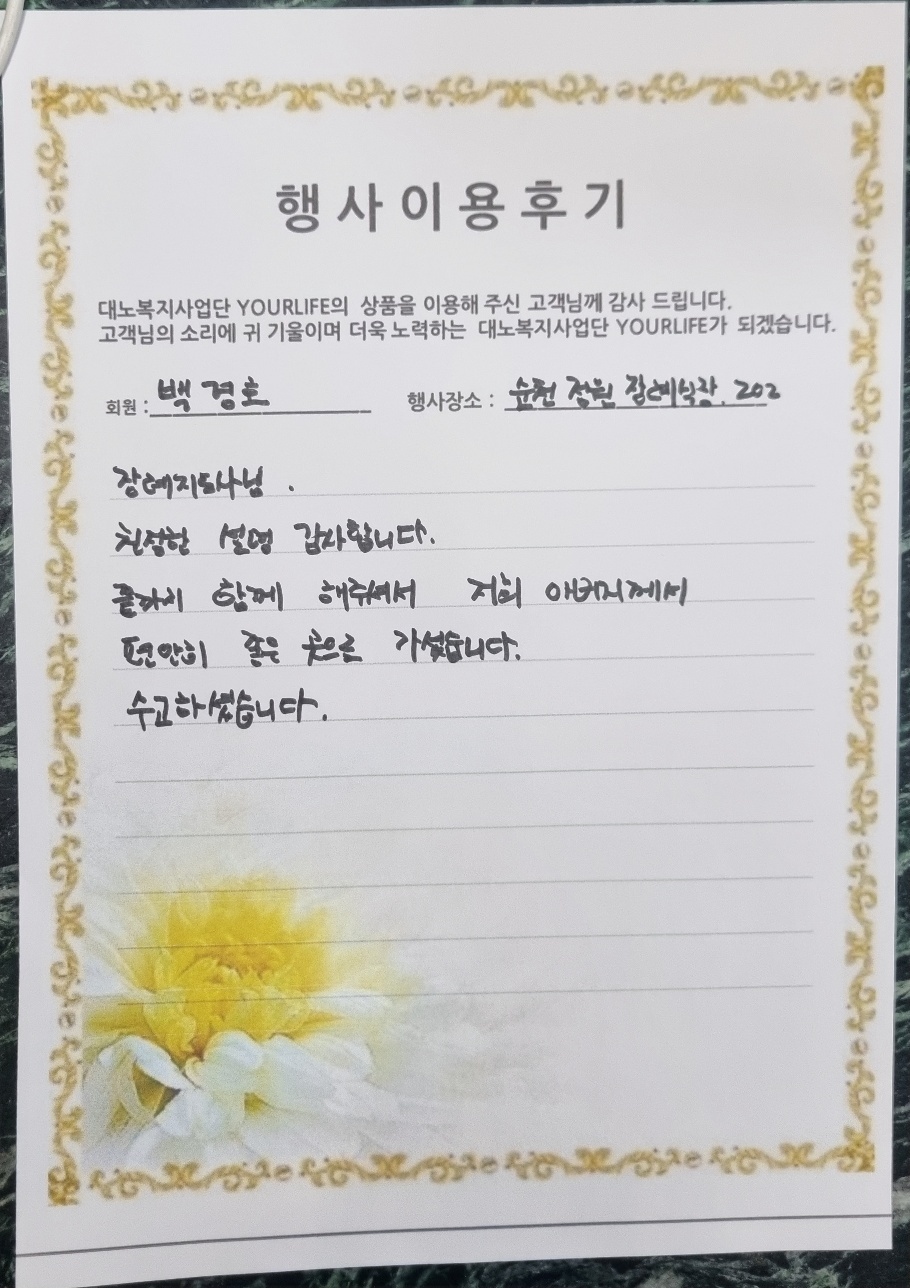 행사이용후기
대노복지사업단 YOURLIFE의 상품을 이용해 주신 고객님께 감사 드립니다.
고객님의 소리에 귀 기울이며 더욱 노력하는 대노복지사업단 YOURLIFE가 되겠습니다.
회원 : 백경호 행사장소 : 순천 정원 장례식장. 202
장례지도사님.
친절한 설명 감사합니다.
끝까지 함께 해주셔서 저희 아버지께서
편안히 좋은 곳으로 가셨습니다.
수고하셨습니다.